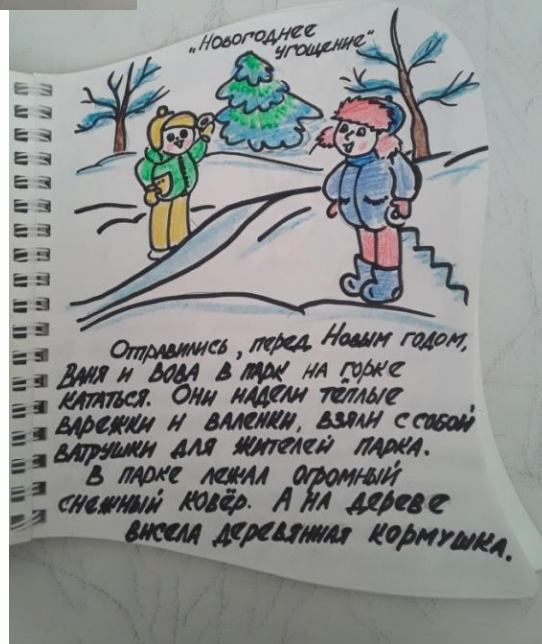 „Новогоднее
угощение"
Отправились, перед Новым годом,
Ваня и Вова в парк на горке
кататься. Они надели тёплые
варежки и валенки, взяли с собой
ватрушки для жителей парка.
В парке лежал огромный
снежный ковёр. А на дереве
висела деревянная кормушка.